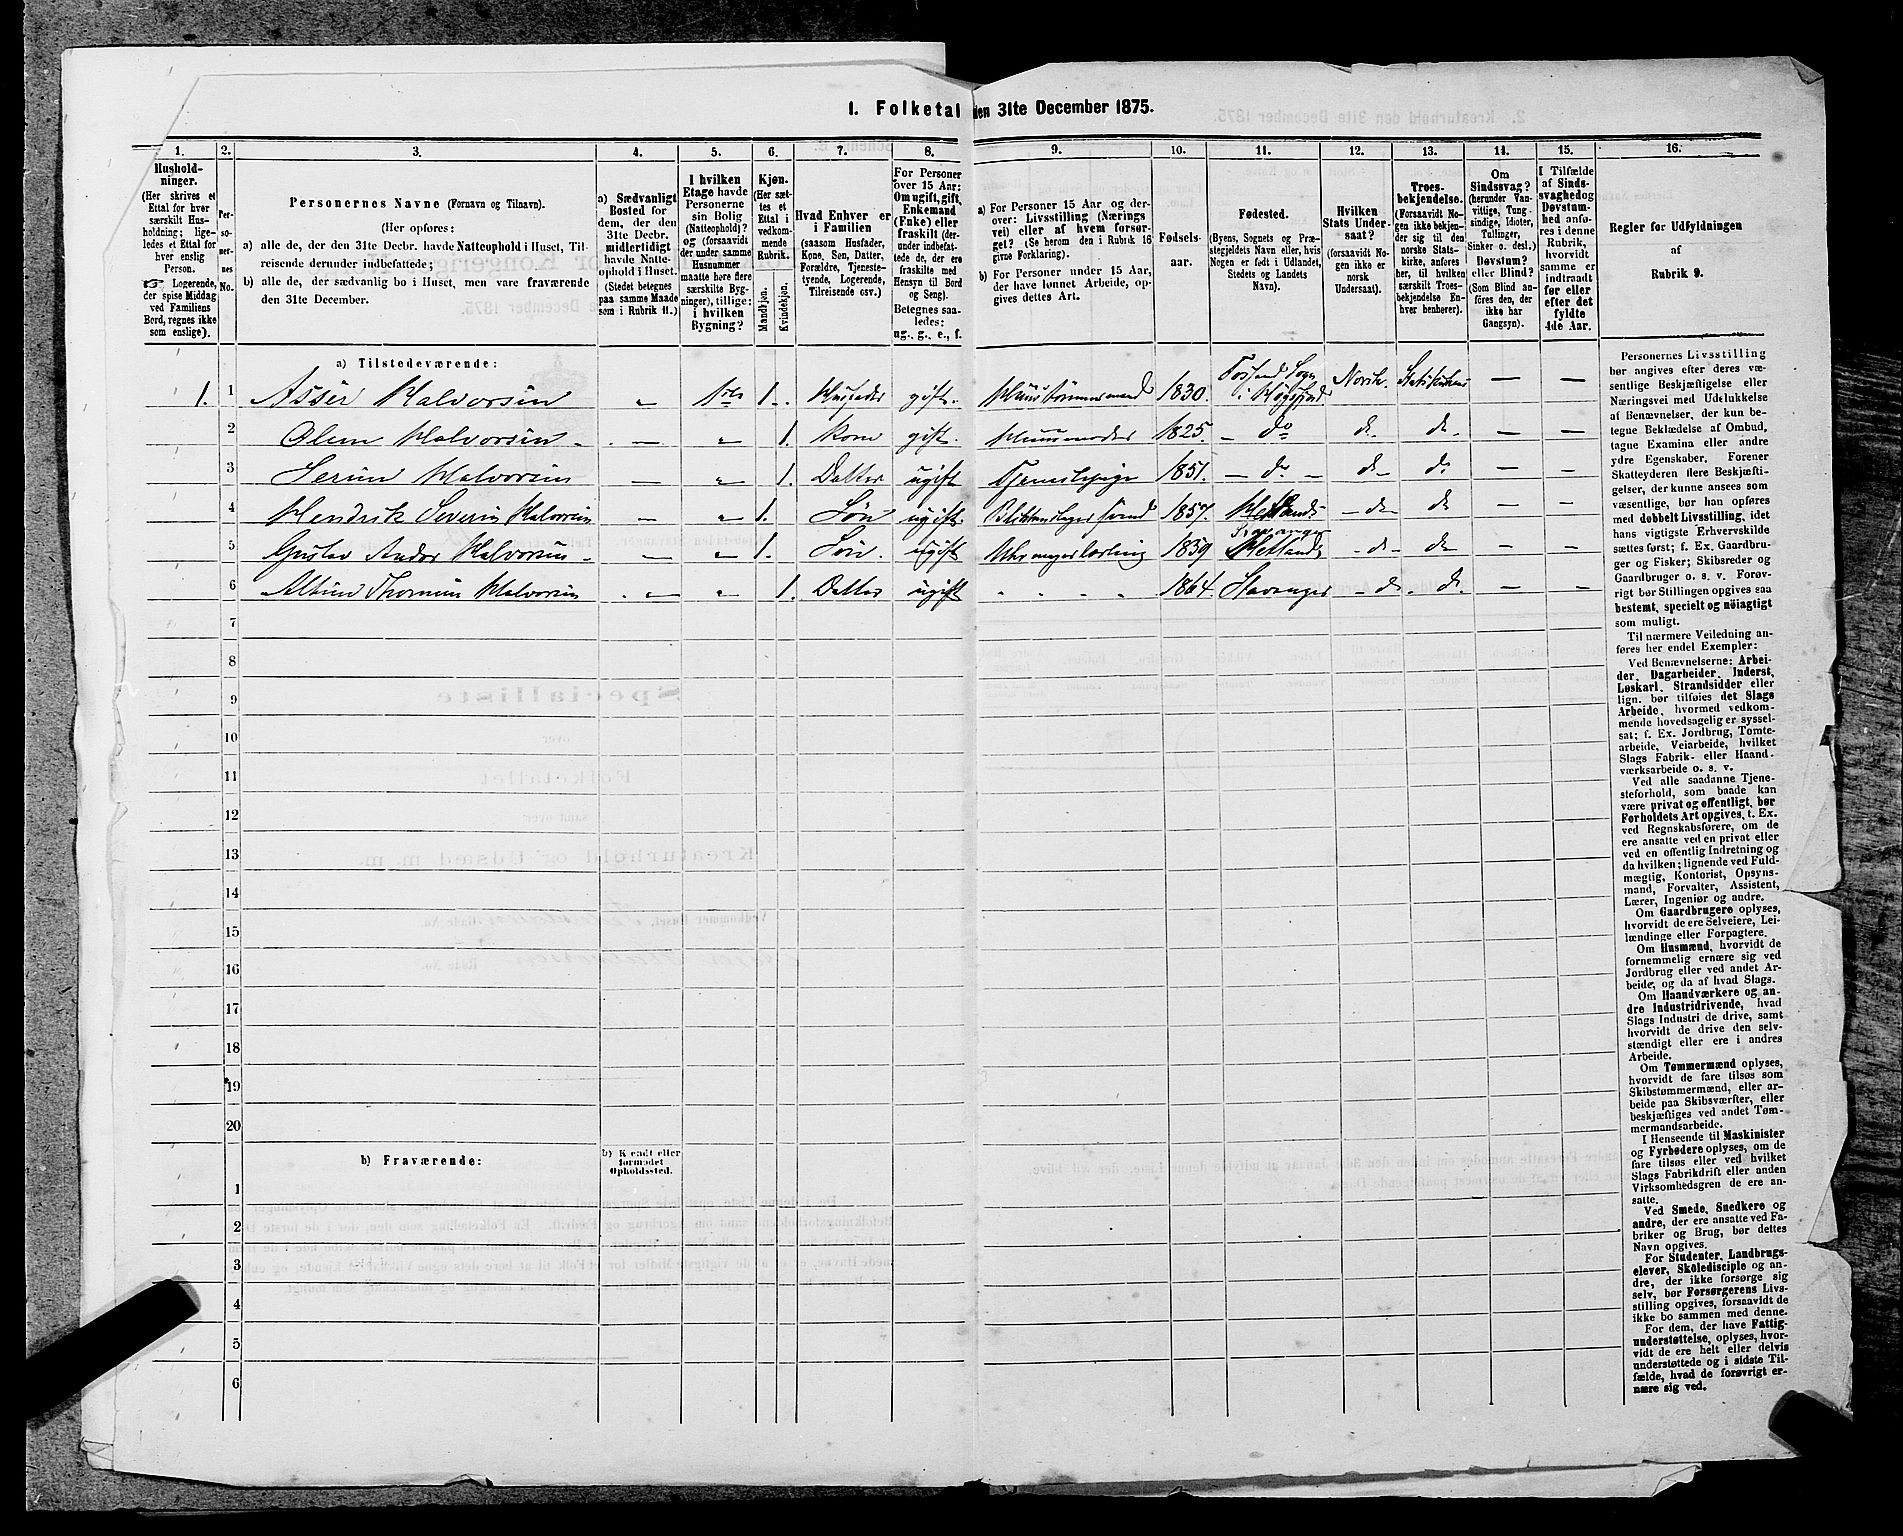 1. Folketal den 31te December 1875.
1. 2. 3. 4. 5. 6. 7. 8. 9. 10. 11. 12. 13. 14. 15. 16.
Hushold-
ninger.
(Her skrives et
Ettal for hver
særskilt Hus-
holdning; lige-
ledes et Ettal for
hver enslig
Person.
☞ Logerende,
der spise Middag
ved Familiens
Bord, regnes ikke
som enslige).
Per-
so-
ner-
nes
No.
Personernes Navne (Fornavn og Tilnavn).
(Her opføres:
a) alle de, der den 31te Decbr. havde Natteophold i Huset, Til-
reisende derunder indbefattede;
b) alle de, der sædvanlig bo i Huset, men vare fraværende
den 31te December.
a) Sædvanligt
Bosted for
dem, der den
31te Decbr.
midlertidigt
havde Natte-
ophold i Huset.
(Stedet betegnes
paa samme Maade
som i Rubrik 11.)
I hvilken
Etage havde
Personerne
sin Bolig
(Natteophold)?
og (forsaavidt
der under samme
Husnummer
maatte høre flere
særskilte Byg-
ninger), tillige:
i hvilken
Bygning?
Kjøn.
(Her sæt-
tes et
Ettal i
vedkom-
mende
Rubrik.
Mandkjøn.
Kvindekjøn.
Hvad Enhver er
i Familien
(saasom Husfader,
Kone, Søn, Datter,
Forældre, Tjeneste-
tyende, Logerende,
Tilreisende osv.)
For Personer
over 15 Aar:
Om ugift, gift,
Enkemand
(Enke) eller
fraskilt (der-
under indbefat-
tede de, der ere
fraskilte med
Hensyn til Bord
og Seng).
Betegnes saa-
ledes:
ug., g., e., f.
a) For Personer 15 Aar og der-
over: Livsstilling (Nærings
vei) eller af hvem forsør-
get? (Se herom den i Rubrik 16
givne Forklaring).
b) For Personer under 15 Aar,
der have lønnet Arbeide, op-
gives dettes Art.
Fødsels-
aar.
Fødested.
(Byens, Sognets og Præ-
stegjeldets Navn eller, hvis
Nogen er født i Udlandet,
Stedets og Landets
Navn).
Hvilken
Stats Under-
saat?
(forsaavidt No-
gen ikke er
norsk
Undersaat).
Troes-
bekjendelse.
(Forsaavidt No-
gen ikke bekjen-
der sig til den
norske Stats-
kirke, anføres
her, til hvilken
særskilt Troes-
bekjendelse En-
hver benhører).
Om
Sindssvag?
(herunder Van-
vittige, Tung-
sindige, Idioter,
Tullinger,
Sinker o. desl.)
Døvstum?
eller Blind?
(Som Blind an-
føres den, der
ikke har
Gangsyn).
I Tilfælde
af Sinds-
svaghed og
Døvstum-
hed anfø-
res i denne
Rubrik,
hvorvidt
samme er
indtraadt
før eller
efter det
fyldte
4de Aar.
Regler for Udfyldningen
af
Rubrik 9.
a) Tilstedeværende:
1. 1 Asser Halvorsen 1. Husfader gift. Huustømmermand 1830. Fossand Sogn i Høgsfjord Norsk. Statskirken — —
2 Halvorsen 1. Kone gift. Huusmoder 1825. do do do — —
3 Serine Halvorsen 1. Datter ugift 1851. do do do — —
4 Hendrik Severin Halvorsen 1. Søn ugift. 1857. Hetlands do do — —
5 Gustav Andor Halvorsen 1. Søn. ugift 1859 Hetlands do do — —
6 Halvorsen 1. Datter ugift 1864. Stavanger do do — —
7
8
9
10
11
12
13
14
15
16
17
18
19
20
b) Fraværende:
b) Kjendt eller
formodet
Opholdssted.
1
2
3
4
5
6
Personernes Livsstilling
bør angives efter deres væ-
sentlige Beskjæftigelse eller
Næringsvei med Udelukkelse
af Benævnelser, der kun be-
tegne Beklædelse af Ombud,
tagne Examina eller andre
ydre Egenskaber. Forener
Skatteyderen flere Beskjæfti-
gelser, der kunne ansees som
væsentlige, bør han opføres
med dobbelt Livsstilling, idet
hans vigtigste Erhvervskilde
sættes først; f. Ex. Gaardbru-
ger og Fisker; Skibsreder og
Gaardbruger o. s. v. Forøv-
rigt bør Stillingen opgives saa
bestemt, specielt og nøiagtigt
som muligt.
Til nærmere Veiledning an-
føres her endel Exempler:
Ved Benævnelserne: Arbei-
der, Dagarbeider, Inderst,
Løskarl, Strandsidder eller
lign. bør tilføies det Slags
Arbeide, hvormed vedkom-
mende hovedsagelig er syssel-
sat; f. Ex. Jordbrug, Tomte-
arbeide, Veiarbeide, hvilket
Slags Fabrik- eller Haand-
værksarbeide o. s. v.
Ved alle saadanne Tjene-
steforhold, som baade kan
være privat og offentligt, bør
Forholdets Art opgives, t. Ex.
ved Regnskabsførere, om de
ere ansatte ved en privat eller
ved en offentlig Indretning og
da hvilken; lignende ved Fuld-
mægtig, Kontorist, Opsyns-
mand, Forvalter, Assistent,
Lærer, Ingeniør og andre.
Om Gaardbrugere oplyses,
hvorvidt de ere Selveiere, Lei-
lændinge eller Forpagtere.
Om Husmænd, hvorvidt de
fornemmelig ernære sig ved
Jordbrug eller ved andet Ar-
beide, og da af hvad Slags.
Om Haandværkere og an-
dre Industridrivende, hvad
Slags Industri de drive, samt
hvorvidt de drive den selv-
stændigt eller ere i andres
Arbeide.
Om Tømmermænd oplyses,
hvorvidt de fare tilsøs som
Skibstømmermænd, eller ar-
beide paa Skibsværfter, eller
beskjæftiges ved andet Tøm-
mermandsarbeide.
I Henseende til Maskinister
og Fyrbødere oplyses, om de
fare tilsøs eller ved hvilket
Slags Fabrikdrift eller anden
Virksomhedsgren de ere an-
satte.
Ved Smede, Snedkere og
andre, der ere ansatte ved Fa-
briker og Brug, bør dettes
Navn opgives.
For Studenter, Landbrugs-
elever, Skoledisciple og an-
dre, der ikke forsørge sig
selv, bør Forsørgerens Livs-
stilling opgives, forsaavidt de
ikke bo sammen med denne.
For dem, der have Fattig-
understøttelse, oplyses, hvor-
vidt de ere helt eller delvis
understøttede og i sidste Til-
fælde, hvad de forøvrigt er-
nære sig ved.